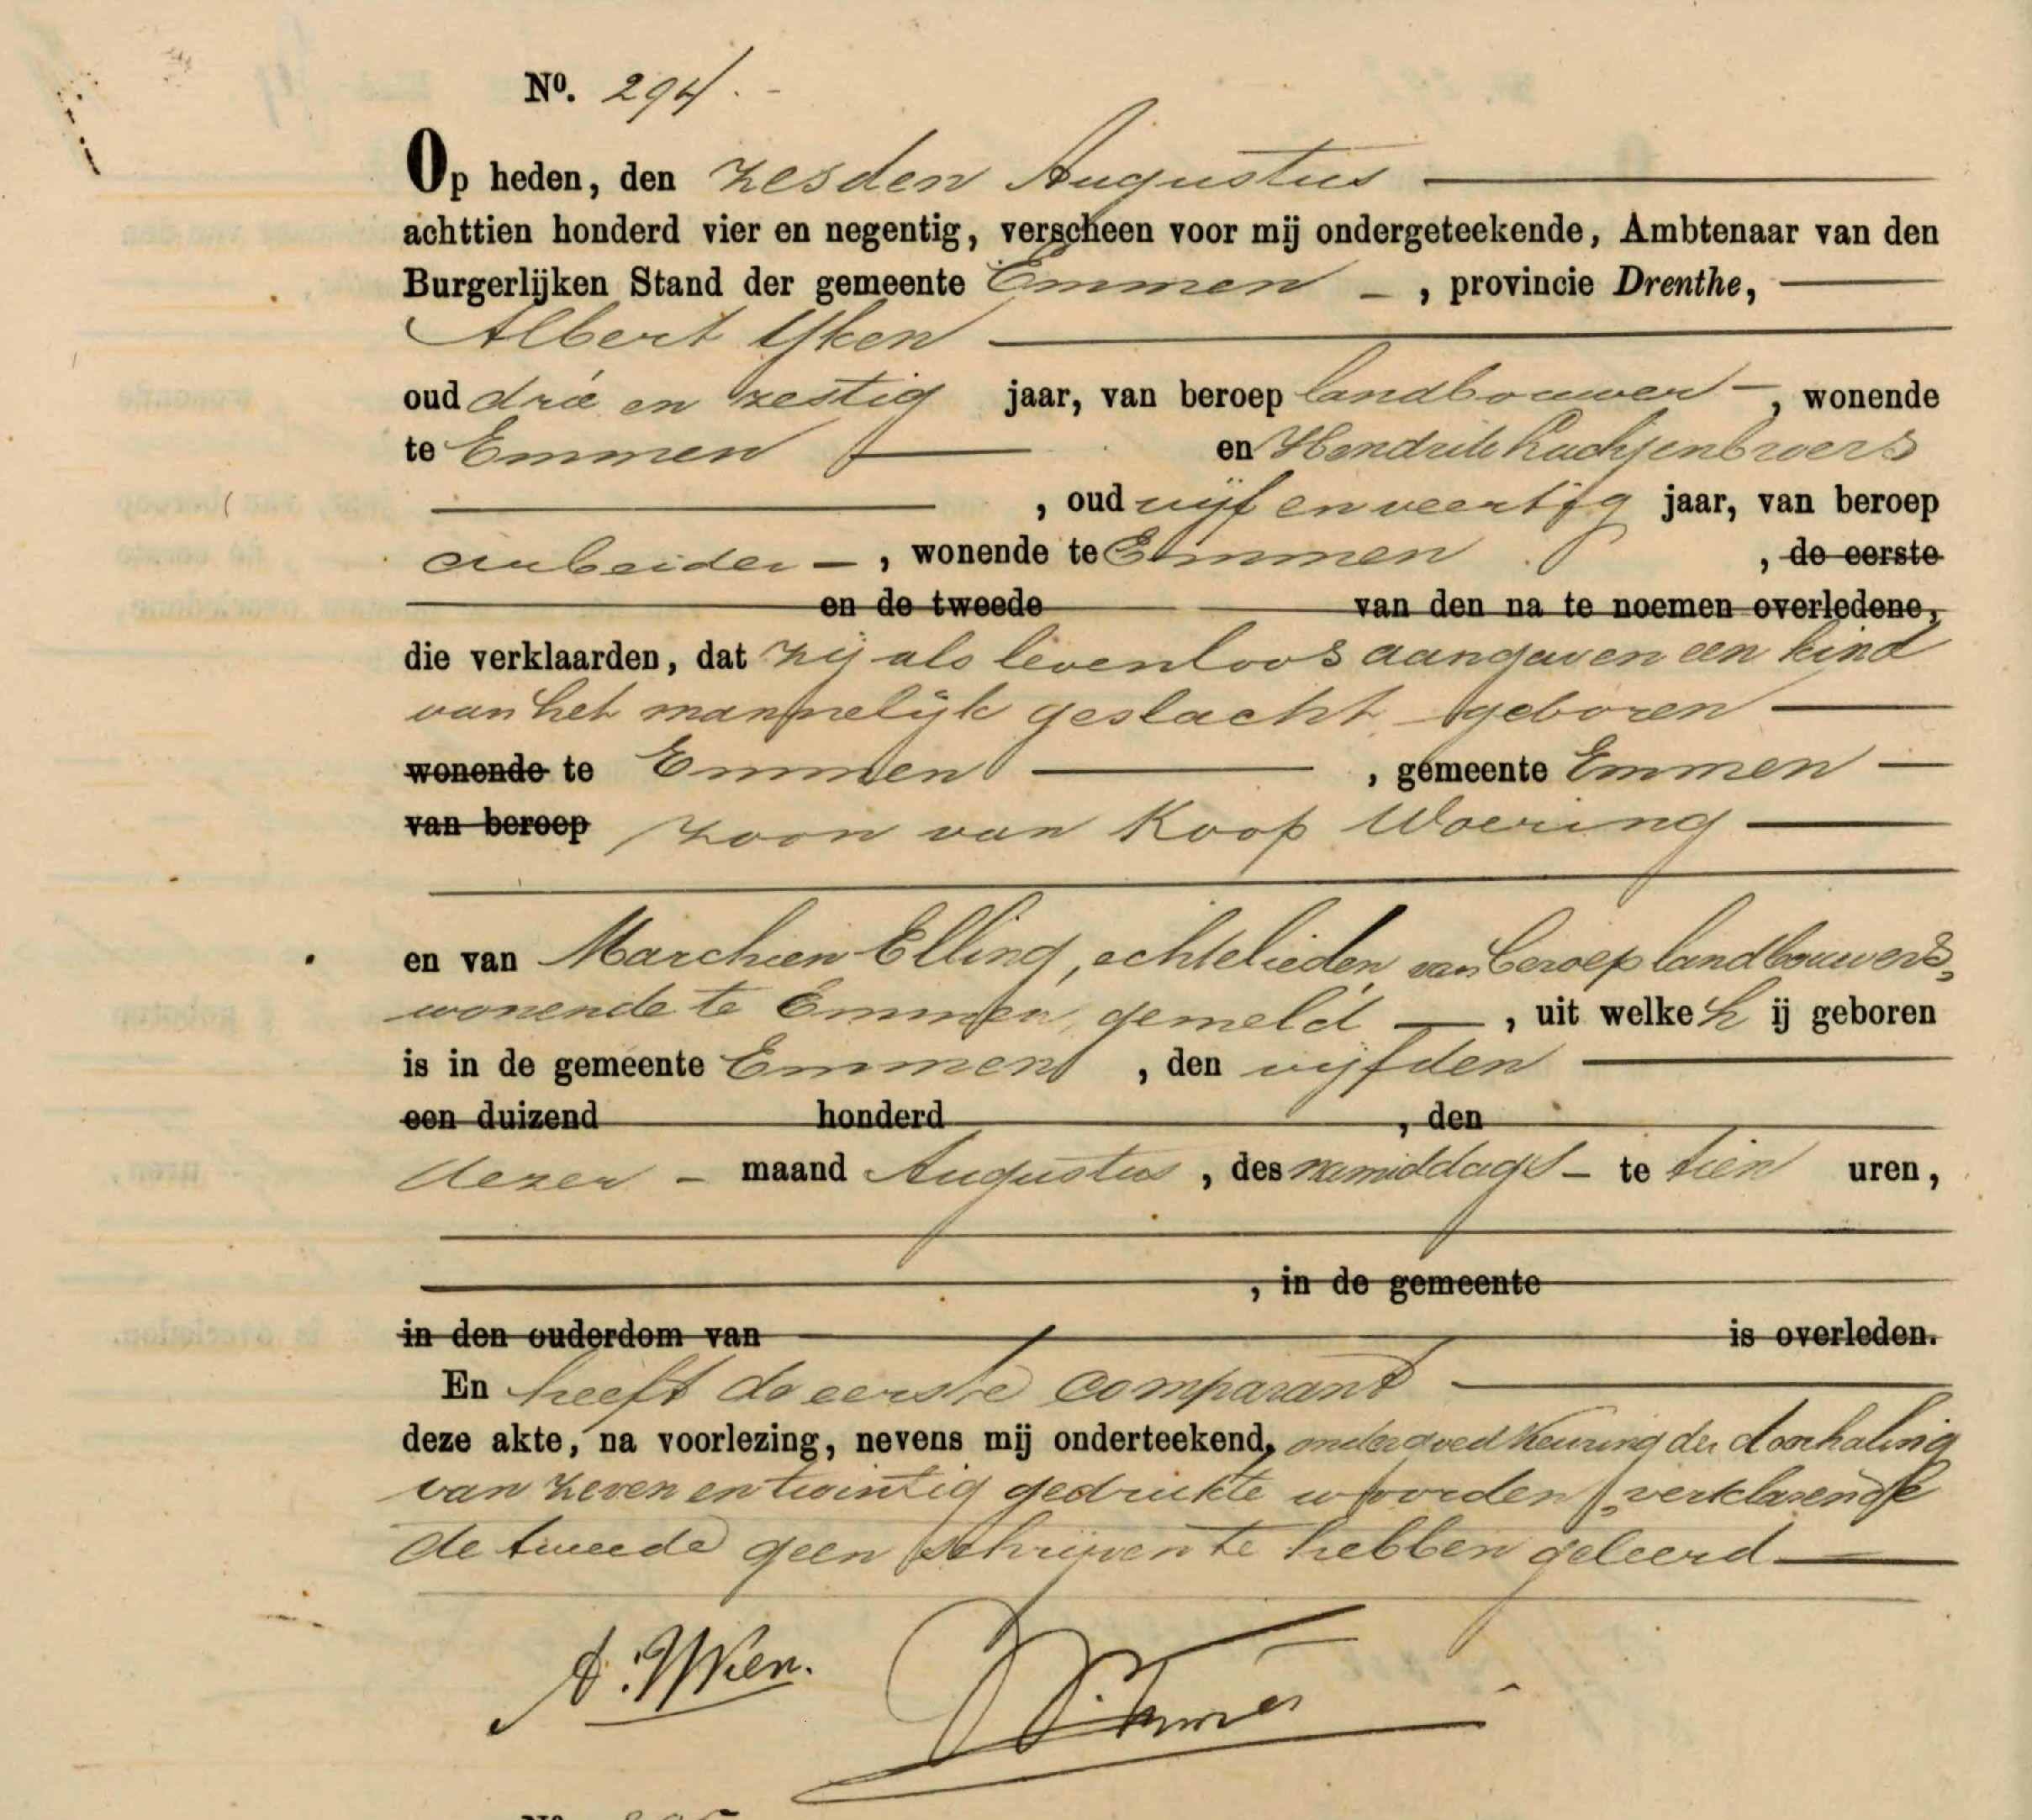 No. 294.
Op heden, den zesden Augustus
achttien honderd vier en negentig, verscheen voor mij ondergeteekende, Ambtenaar van den
Burgerlijken Stand der gemeente Emmen, provincie Drenthe,
Albert IJken
oud drie en zestig jaar, van beroep landbouwer, wonende
te Emmen en Hendrik Lachjenbroers
, oud vijf en veertig jaar, van beroep
arbeider, wonende te Emmen, de eerste
en de tweede van den na te noemen overledene,
die verklaarden, dat zij als levenloos aangaven een kind
van het mannelijk geslacht, geboren
wonende te Emmen, gemeente Emmen
van beroep zoon van Koop Woering
en van Marchien Elling, echtelieden, van beroep landbouwers,
wonende te Emmen, gemeld, uit welke h ij geboren
is in de gemeente Emmen, den vijfden
een duizend honderd, den
dezer maand Augustus, des namiddags te tien uren,
, in de gemeente
in den ouderdom van is overleden.
En heeft de eerste comparant
deze akte, na voorlezing, nevens mij onderteekend, onder goedkeuring der doorhaling
van zeven en twintig gedrukte woorden, verklarende
de tweede geen schrijven te hebben geleerd
A. IJken.